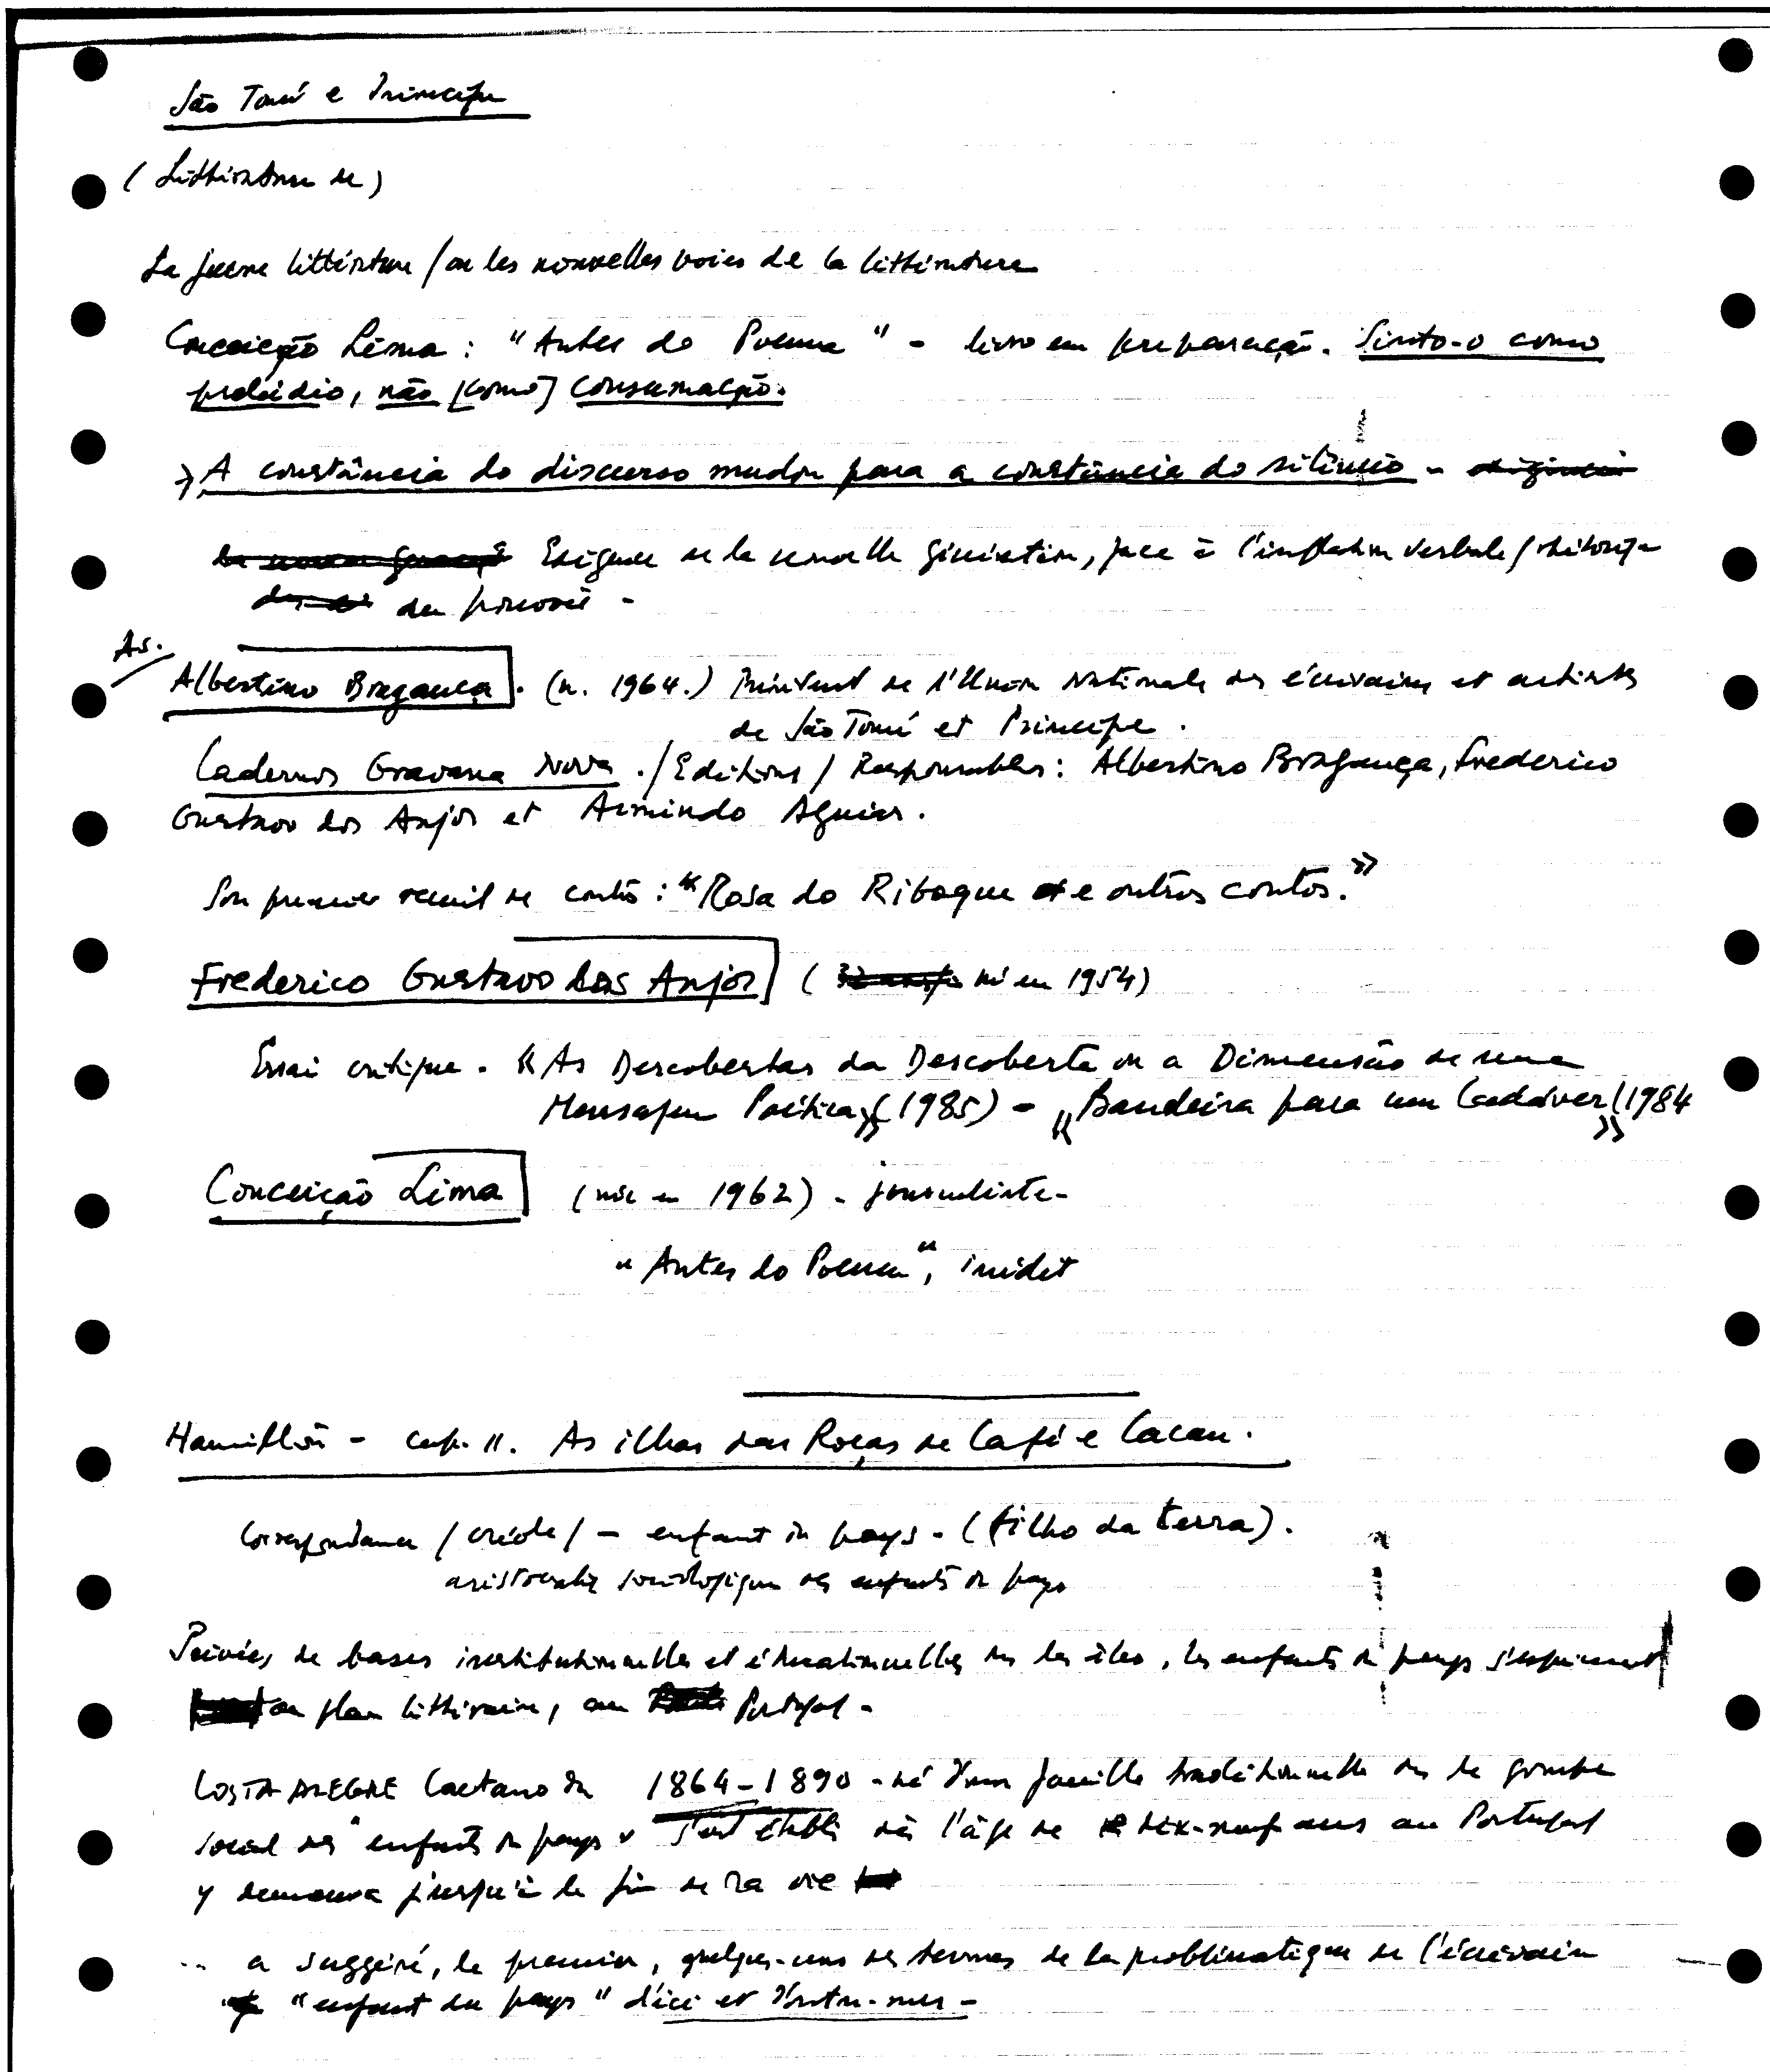 São Tomé e Principe
(Littérature de)
La jeune littérature / ou les nouvelles voies de la littérature
Conceição Lima : "Antes do Poema" - livro em preparação. Sinto-o como
prelúdio, não [como] consumação.
A constância do discurso mudou para a constância do silêncio -
Exigence de la nouvelle génération, face à l'inflation verbale / rhétorique
du pouvoir -
As.
Albertino Bragança . (n. 1964.) Président de l'Union Nationale des écrivains et artistes
de São Tomé et Principe .
Cadernos Gravana Nova . / Editions / Responsables : Albertino Bragança, Frederico
Gustavo dos Anjos et Armindo Aguiar .
Son premier recueil de contos : "Rosa do Riboque e outros contos."
Frederico Gustavo dos Anjos ( né en 1954)
Essai critique . « As Descobertas da Descoberta ou a Dimensão de uma
Mensagem Poética » (1985) - « Bandeira para um Cadáver » (1984
Conceição Lima (née en 1962) - journaliste -
" Antes do Poema ", inédit
Hamilton - cap. 11. As ilhas das Roças de Café e Cacau .
Correspondance / créole / - enfant du pays - (filho da terra) .
aristocratie sociologique des enfants du pays
Privés de bases institutionnelles et éducationnelles ds les îles, les enfants du pays s'expriment
au plan littéraire, au Portugal -
COSTA ALEGRE Caetano da 1864-1890 - né d'une famille traditionnelle ds le groupe
social des "enfants du pays" s'est établi dès l'âge de dix-neuf ans au Portugal
y demeura jusqu'à la fin de sa vie
... a suggéré, le premier, quelques-uns des termes de la problématique de l'écrivain
"enfant du pays" d'ici et d'outre-mer -